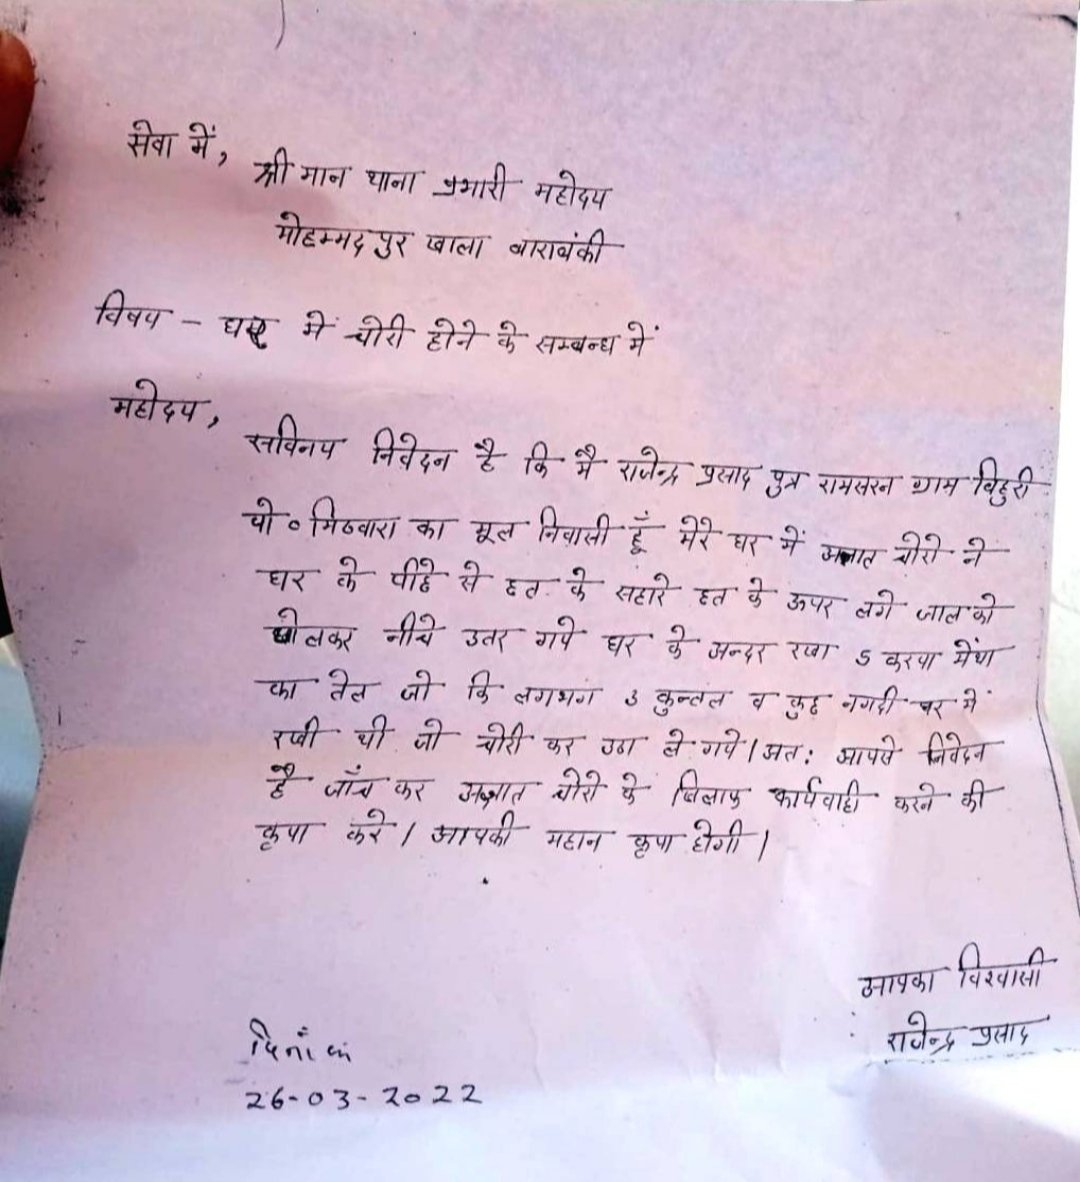 सेवा में,
श्री मान थाना प्रभारी महोदय
मोहम्मद पुर खाला बाराबंकी
विषय - घर में चोरी होने के सम्बन्ध में
महोदय,
सविनय निवेदन है कि मै राजेन्द्र प्रसाद पुत्र रामसरन ग्राम विहुरी
पो० मिठवारा का मूल निवासी हूँ मेरे घर में अज्ञात चोरो ने
घर के पीछे से छत के सहारे छत के ऊपर लगे जाल को
खोलकर नीचे उतर गये घर के अन्दर रखा 5 करपा मेंथा
का तेल जो कि लगभग 3 कुन्तल व कुछ नगदी घर में
रखी थी जो चोरी कर उठा ले गये। अत: आपसे निवेदन
है जाँच कर अज्ञात चोरो के खिलाफ कार्यवाही करने की
कृपा करे। आपकी महान कृपा होगी।
आपका विश्वासी
राजेन्द्र प्रसाद
दिनाँक
26-03-2022